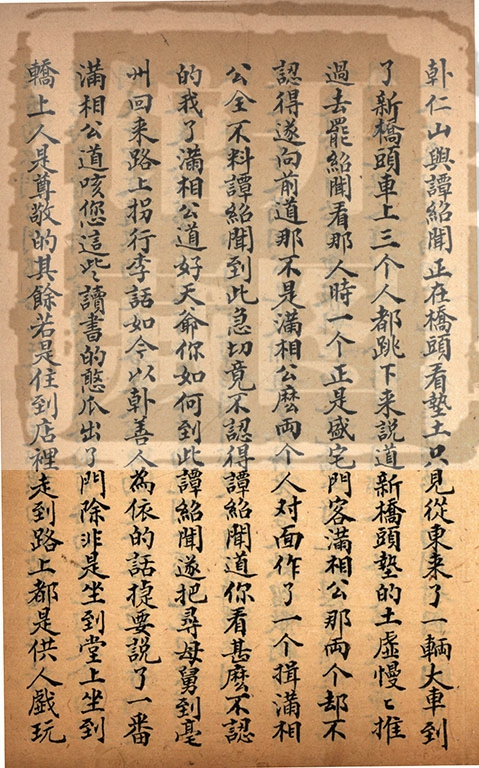 韩仁山與譚紹聞正在橋頭看墊土只見從東来了一輌大車到
了新橋頭車上三个人都跳下来説道新橋頭墊的土虚慢〻推
過去罷紹聞看那人時一个正是盛宅門客滿相公那兩个却不
認得遂向前道那不是滿相公麽兩个人对面作了一个揖滿相
公全不料譚紹聞到此急切竟不認得譚紹聞道你看甚麽不認
的我了滿相公道好天爺你如何到此譚紹聞遂把尋母舅到亳
州回来路上拐行李話如今以韩善人為依的話提要説了一番
滿相公道咳您這些讀書的憨瓜出了門除非是坐到堂上坐到
轎上人是尊敬的其餘若是住到店裡走到路上都是供人戲玩